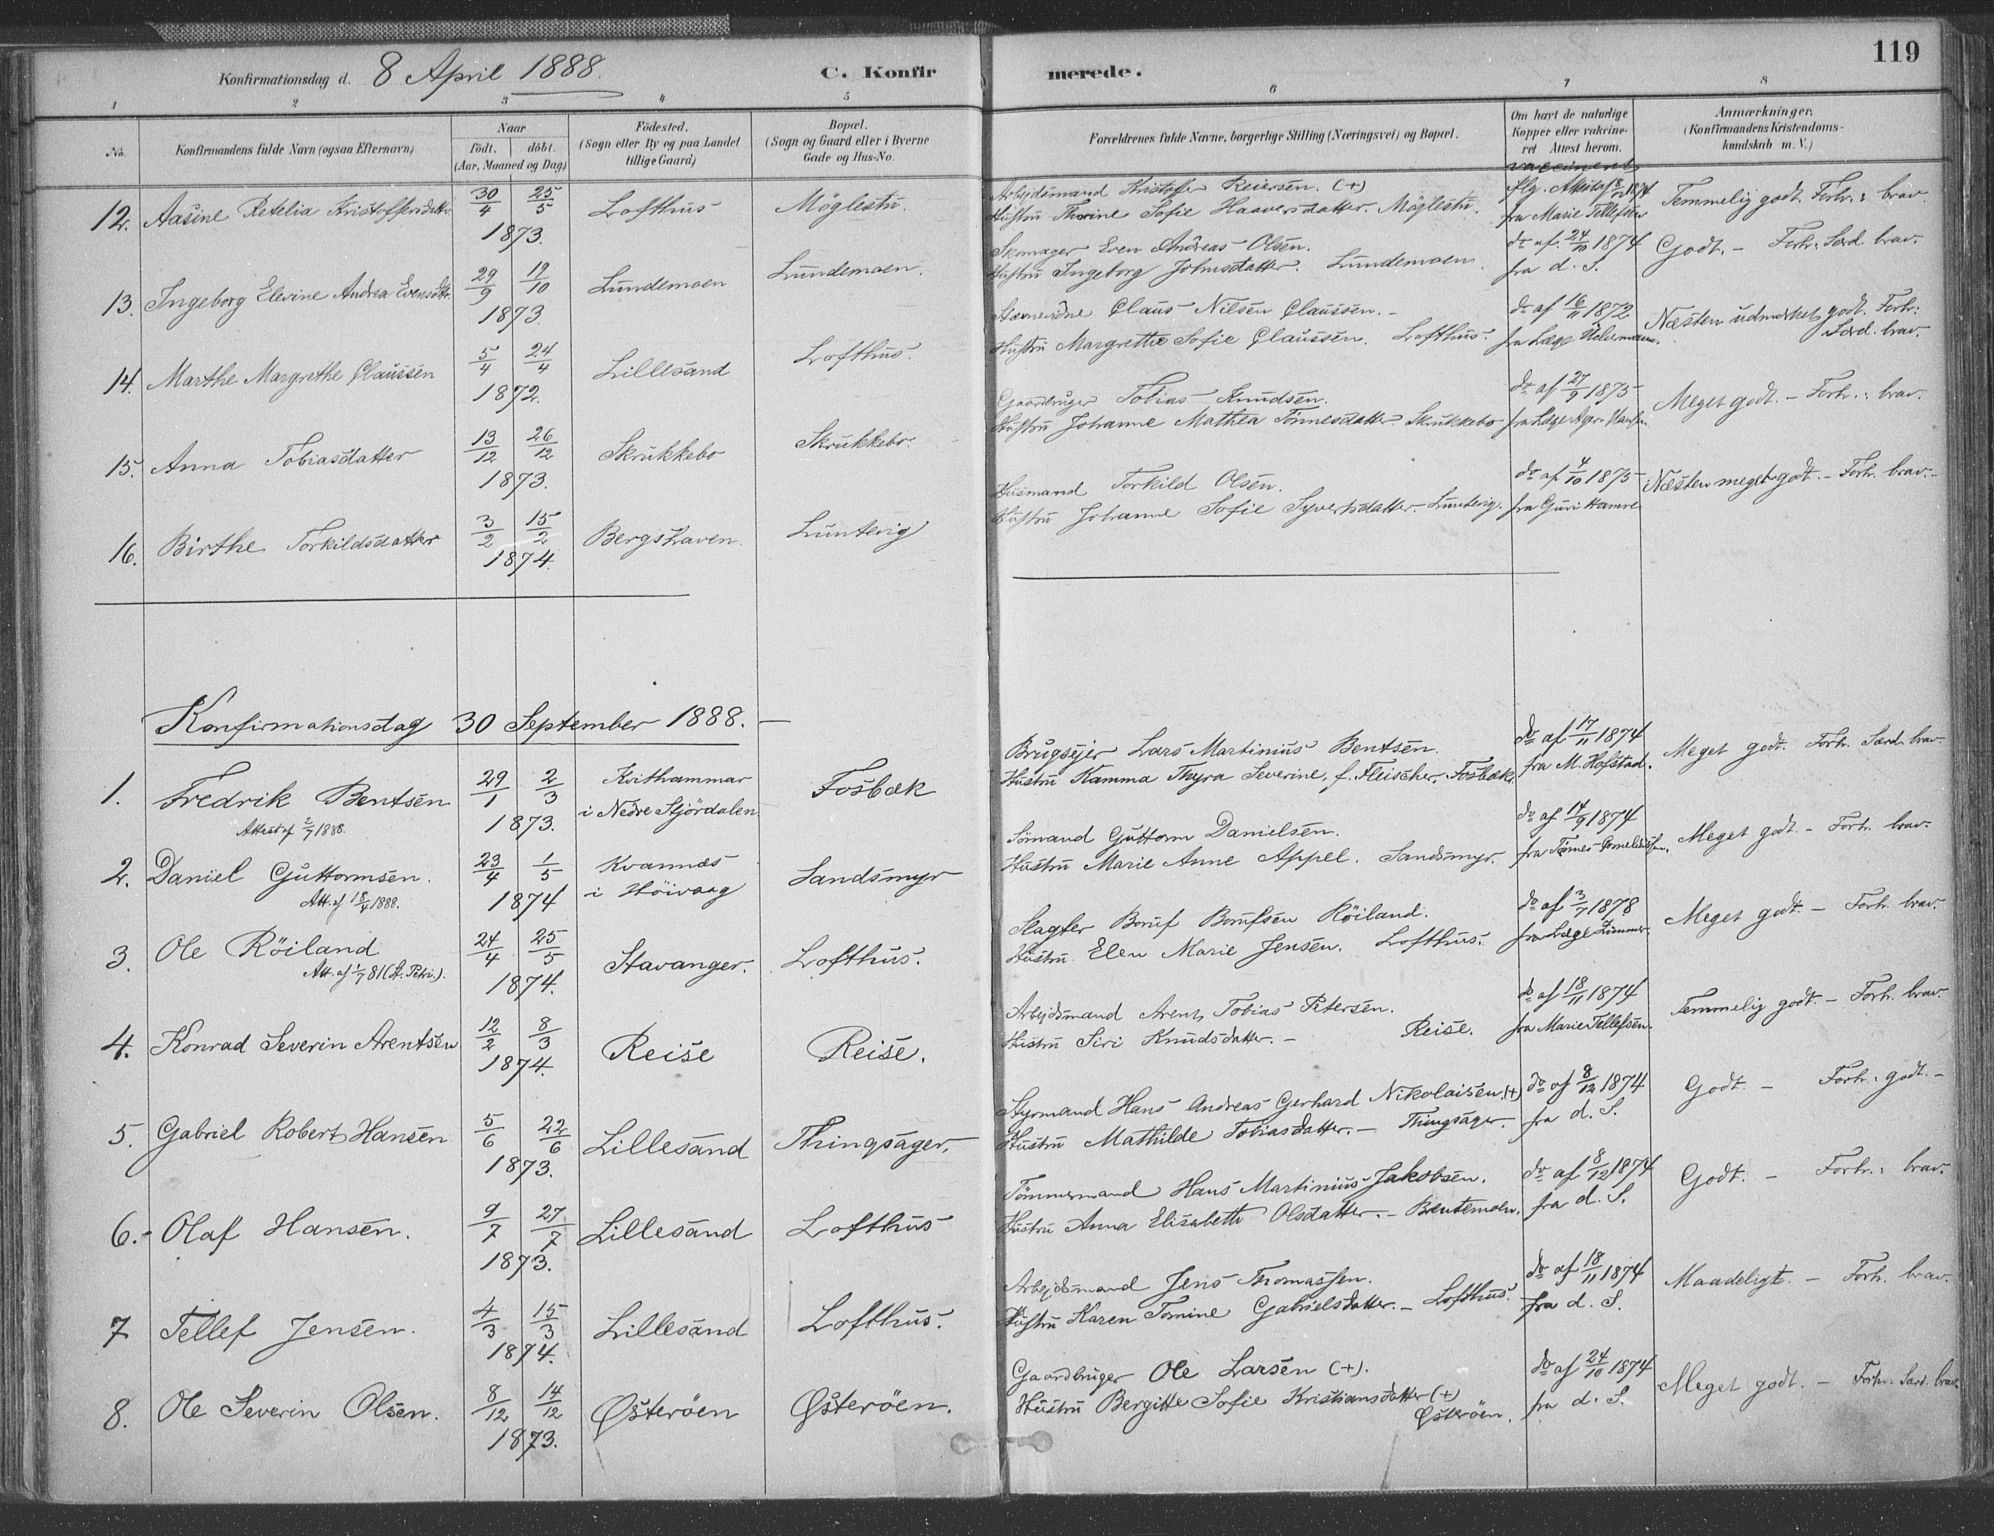 119
Konfirmationsdag d. 8 April 1888. C. Konfirmerede.
1 2 3 4 5 6 7 8
No. Konfirmandens fulde Navn (ogsaa Efternavn) Naar født. døbt. (Aar, Maaned og Dag) Fødested. (Sogn eller By og paa Landet tillige Gaard) Bopæl. (Sogn og Gaard eller i Byerne Gade og Hus-No. Forældrenes fulde Navne, borgerlige Stilling (Næringsvei) og Bopæl. Om havt de naturlige Kopper eller vakcineret Attest herom. Anmærkninger. (Konfirmandens Kristendomskundskab m. V.)
12. Aasine Retelia Kristoffersdatter 30/4 25/5 1873. Lofthus Möglestu. Arbejdsmand Kristofer Reiersen. (+)
Hustru Thorine Sofie Haaversdatter. Möglestu. vaccineret flg. Attest af 18/11 1874 fra Marie Tellefsen Temmelig godt. Forh.: brav.
13. Ingeborg Elevine Andrea Evensdtr. 29/9 19/10 1873. Lundemoen Lundemoen. Skomager Even Andreas Olsen.
Hustru Ingeborg Johnsdatter. Lundemoen. do af 24/10 1874 fra d. S. Godt. – Forh. Særd. brav.
14. Marthe Margrethe Claussen 5/4 24/4 1872. Lillesand Lofthus. Claus Nilsen Claussen. –
Hustru Margrethe Sofie Claussen. Lofthus. do af 16/11 1872 fra Læge Næsten udmærket godt. Forh: Særd. brav.
15. Anna Tobiasdatter 13/12 26/12 1873. Skrukkebo Skrukkebo. Gaardbruger Tobias Knudsen.
Hustru Johanne Mathea Tönnesdatter Skrukkebo do af 27/9 1875 fra Læge Meget godt. – Forh.: brav.
16. Birthe Torkildsdatter 3/2 15/2 1874. Bergshaven. Luntevig Husmand Torkild Olsen.
Hustru Johanne Sofie Syvertsdatter. Luntevig. do af 4/10 1875 fra Guri Hamre Næsten meget godt. – Forh. brav. –
Konfirmationsdag 30 September 1888. –
1. Fredrik Bentsen 29/1 2/3 1873. Kvithammar i Nedre Stjördalen Fosbæk Brugsejer Lars Martinius Bentsen.
Attest af 2/7 1888. Hustru Kamma Thyra Severine, f. Fleischer. Fosbæk. do af 17/11 1874 fra M. Hofstad. Meget godt. Forh. Særd. brav.
2. Daniel Guttormsen. 23/4 1/5 1874 Kvannes i Höivaag Sandsmyr Sömand Guttorm Danielsen.
Att. af 18/4 1888. Hustru Marie Anne Appel. Sandsmyr. do af 14/9 1874 fra Meget godt. – Forh. brav.
3. Ole Röiland 24/4 25/5 1874. Stavanger. Lofthus. Slagter Boruf Borufsen Röiland.
Att. af 1/7 81 (St. Petri). Hustru Elen Marie Jensen. Lofthus. do af 3/7 1878 fra Læge Zimmer. Meget godt. – Forh. brav.
4. Konrad Severin Arentsen 12/2 8/3 1874. Reise Reise. Arbejdsmand Arent Tobias Petersen.
Hustru Siri Knudsdatter. – Reise. do af 18/11 1874 fra Marie Tellefsen. Temmelig godt. – Forh. brav.
5. Gabriel Robert Hansen 5/6 22/6 1873. Lillesand Thingsager. Styrmand Hans Andreas Gerhard Nikolaisen. (+)
Hustru Mathilde Tobiasdatter. – Thingsager. do af 8/12 1874 fra d. S. Godt. – Forh.: godt. –
6. – Olaf Hansen. 9/7 27/7 1873. Lillesand Lofthus Tömmermand Hans Martinius Jakobsen.
Hustru Anna Elisabeth Olsdatter. – Bentemoen. do af 8/12 1874 fra d. S. Godt. – Forh.: brav.
7 Tellef Jensen. 4/3 15/3 1874. Lillesand Lofthus. Arbejdsmand Jens Thomassen.
Hustru Karen Tomine Gabrielsdatter. – Lofthus. do af 18/11 1874 fra d. S. Maadeligt. – Forh. brav.
8. Ole Severin Olsen. 8/12 14/12 1873. Østeröen Østeröen. Gaardbruger Ole Larsen (+).
Hustru Bergitte Sofie Kristiansdatter (+) Østeröen. do af 24/10 1874 fra d. S. Meget godt. – Forh. Særd. brav.